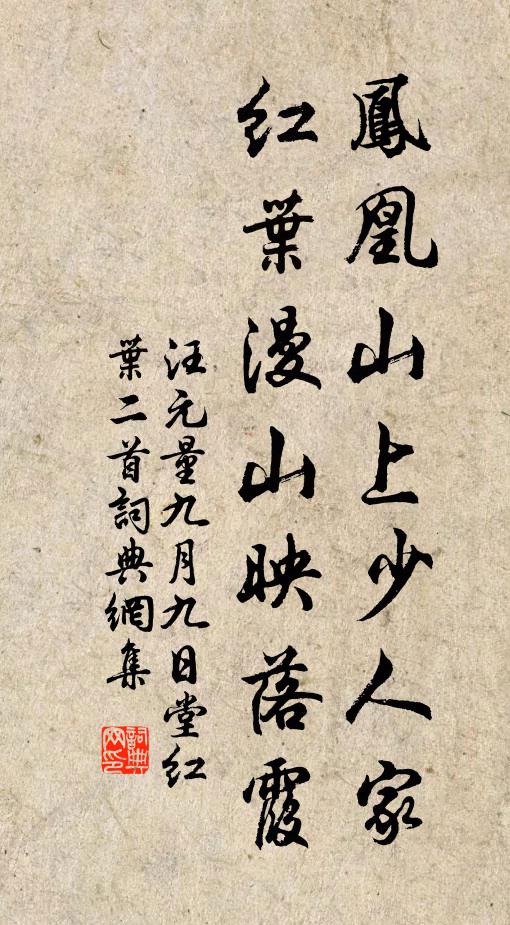 鳳凰山上少人家
紅葉漫山映落霞
汪元量九月九日堂紅
葉二首詞典網集
詞典
网印